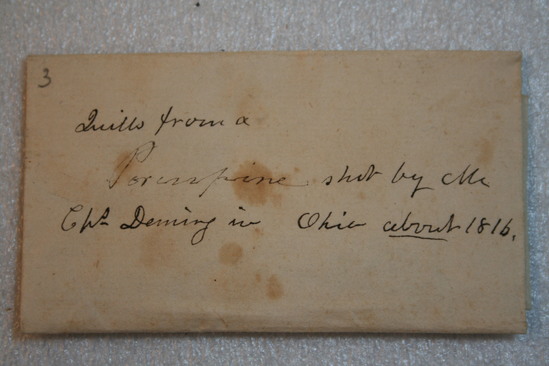 3
Quills from a
Porcupine shot by Mr
Chs Deming in Ohio about 1816.